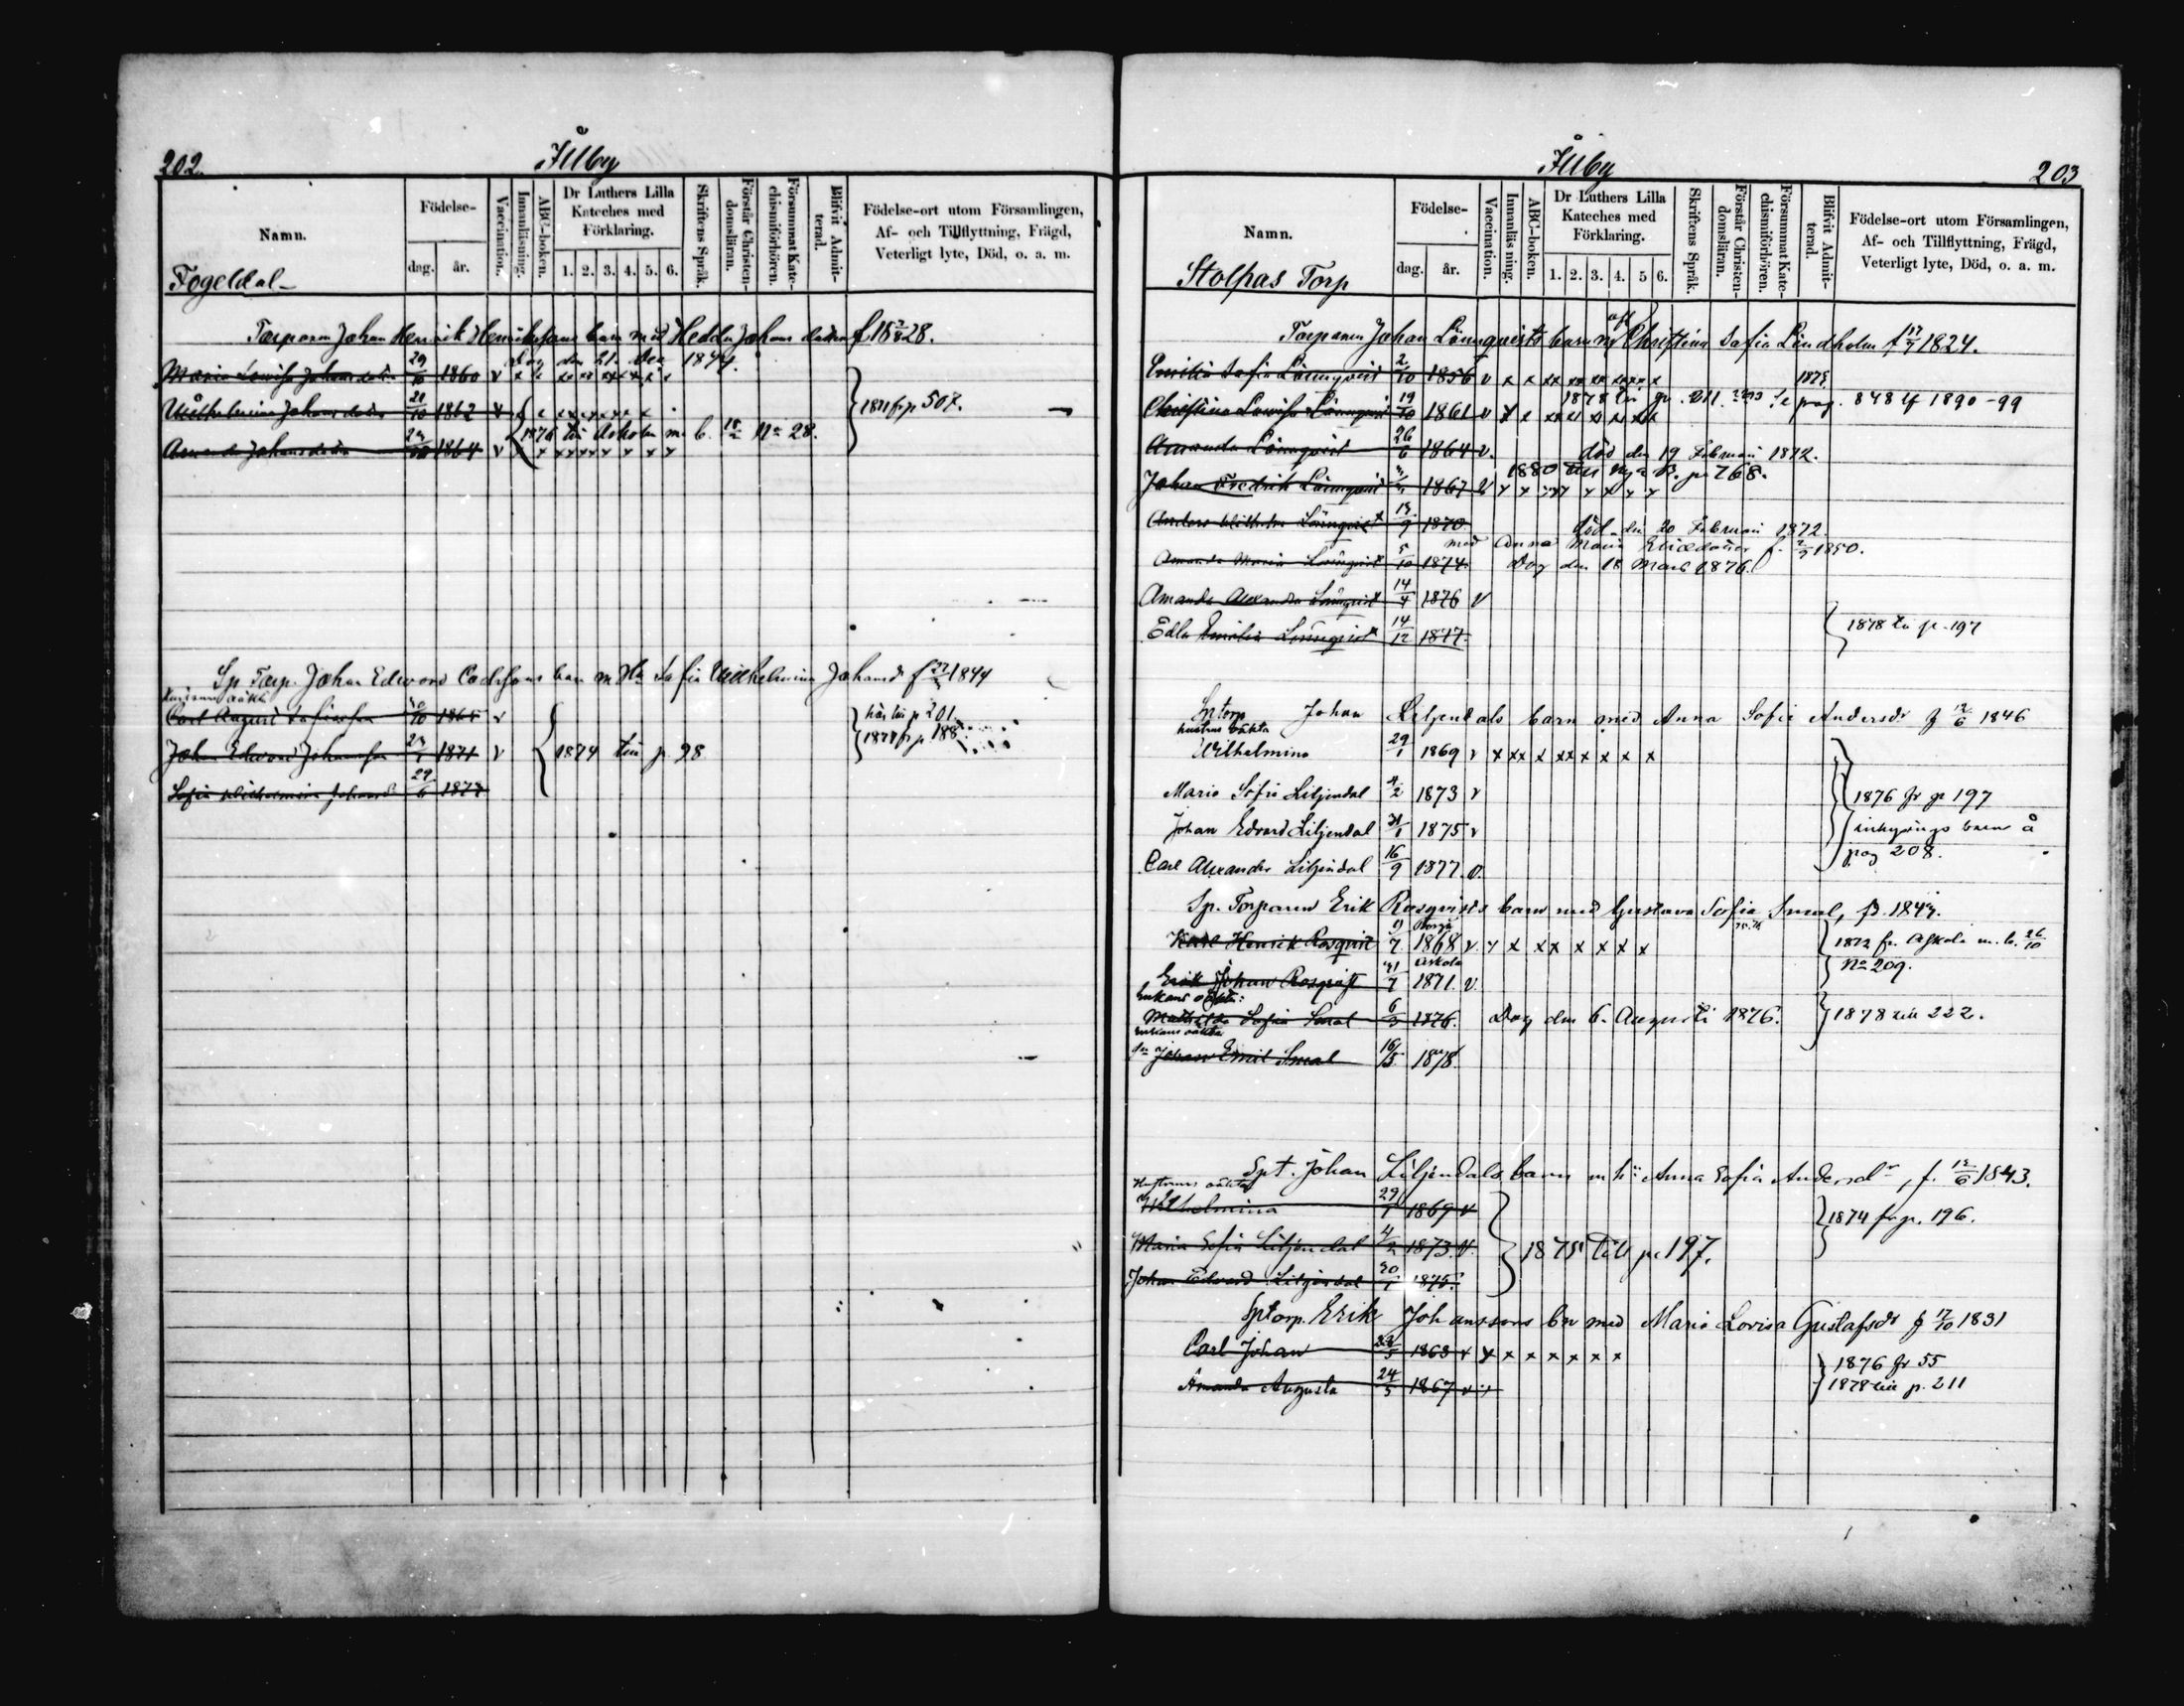 202.
Ålby
Namn.
Födelse-
dag.
år.
Vaccination.
Innanläsning.
ABC-boken.
Dr Luthers Lilla
Kateches med
Förklaring.
1. 2. 3. 4. 5. 6.
Skriftens Språk.
Förstår Christen-
domsläran.
Försummat Kate-
chismiförhören.
Blifvit Admit-
terad.
Födelse-ort utom Församlingen,
Af- och Tillflyttning, Frägd,
Veterligt lyte, Död, o. a. m.
Fogeldal
Torparen Johan Henrik Henrikssons barn med Hedda Johans dotter f. 1828.
Dog den 21. Dec 1874.
Maria Lovisa Johansdotter 29/10 1860 v
Wilhelmina Johansdotter 21/10 1862 v
1871 fr p 507.
1876 till Askola m. b. N:o 28.
Amanda Johansdotter 1864 v
Sp Torp. Johan Edvard Carlssons barn m Hu Sofia Wilhelmina Johansd f 1844
Hustruns oäkta
Carl August 10 1865 v
här till p 201
Johan Edvard Johansson 1871 v
1874 till p. 98
1877 fr p. 188
Sofia Wilhelmina Johansd 29/6 1873
Ålby
203
Namn.
Födelse-
dag.
år.
Vaccination.
Innanläsning.
ABC-boken.
Dr Luthers Lilla
Kateches med
Förklaring.
1. 2. 3. 4. 5 6.
Skriftens Språk.
Förstår Christen-
domsläran.
Försummat Kate-
chismiförhören.
Blifvit Admit-
terad.
Födelse-ort utom Församlingen,
Af- och Tillflyttning, Frägd,
Veterligt lyte, Död, o. a. m.
Stolpas Torp
Torparen Johan Lönnqvists barn m afl Christina Sofia Lindholm f 17/7 1824.
Emilia Sofia Lönnqvist 2/10 1856 v
Christina Lovisa Lönnqvist 19/10 1861 v
1878 till p. 211. Se pag. 848 if 1890-99
Amanda Lönnqvist 26/6 1864 v. död den 19 Februari 1872.
1880 till nya B. p. 768.
Johan Fredrik Lönnqvist 1867 v
Anders Wilhelm Lönnqvist 13/9 1870 död den 20 Februari 1872.
med Anna Maria Ericsdotter f. 1850.
Amanda Maria Lönnqvist 5/10 1874 Dog den 18 Mars 1876.
Amanda Alexandra Lönnqvist 14/4 1876 v
Edla Emilia Lönnqvist 14/12 1877
1878 till p. 197
Sptorp Johan Liljendals barn med Anna Sofia Andersdr f 12/6 1846
hustrus oäkta
Wilhelmina 29/1 1869 v
Maria Sofia Liljendal 4/2 1873 v
1876 fr p 197
Johan Edvard Liljendal 31/1 1875 v
inhysings barn å
Carl Alexander Liljendal 16/9 1877. v.
pag 208.
Sp. Torparen Erik Rosqvists barn med Gustava Sofia Smal, f. 1847.
Borgå
Karl Henrik Rosqvist 7 1868 v
1872 fr. Askola m. b. 26/10
N:o 209.
Askola
Erik Johan Rosqvist 31/7 1871. v.
Enkans oäkta:
Mathilda Sofia Smal 6/3 1876. Dog den 6. Augusti 1876.
1878 till 222.
Enkans oäkta
Johan Emil Smal 16/5 1878.
Spt. Johan Liljendals barn m h: Anna Sofia Andersdr, f. 12/6 1843.
Hustruns oäkta
Wilhelmina 29/1 1869 v
1874 fr p. 196.
Maria Sofia Liljendal 4/2 1873. v.
1875 till p. 197.
Johan Edvard Liljendal 30/1 1875.
Sptorp. Erik Johanssons bn med Maria Lovisa Gustafsdr f 17/10 1831
Carl Johan 1863 v
1876 fr 55
Amanda Augusta 24/5 1867 v
1878 till p. 211